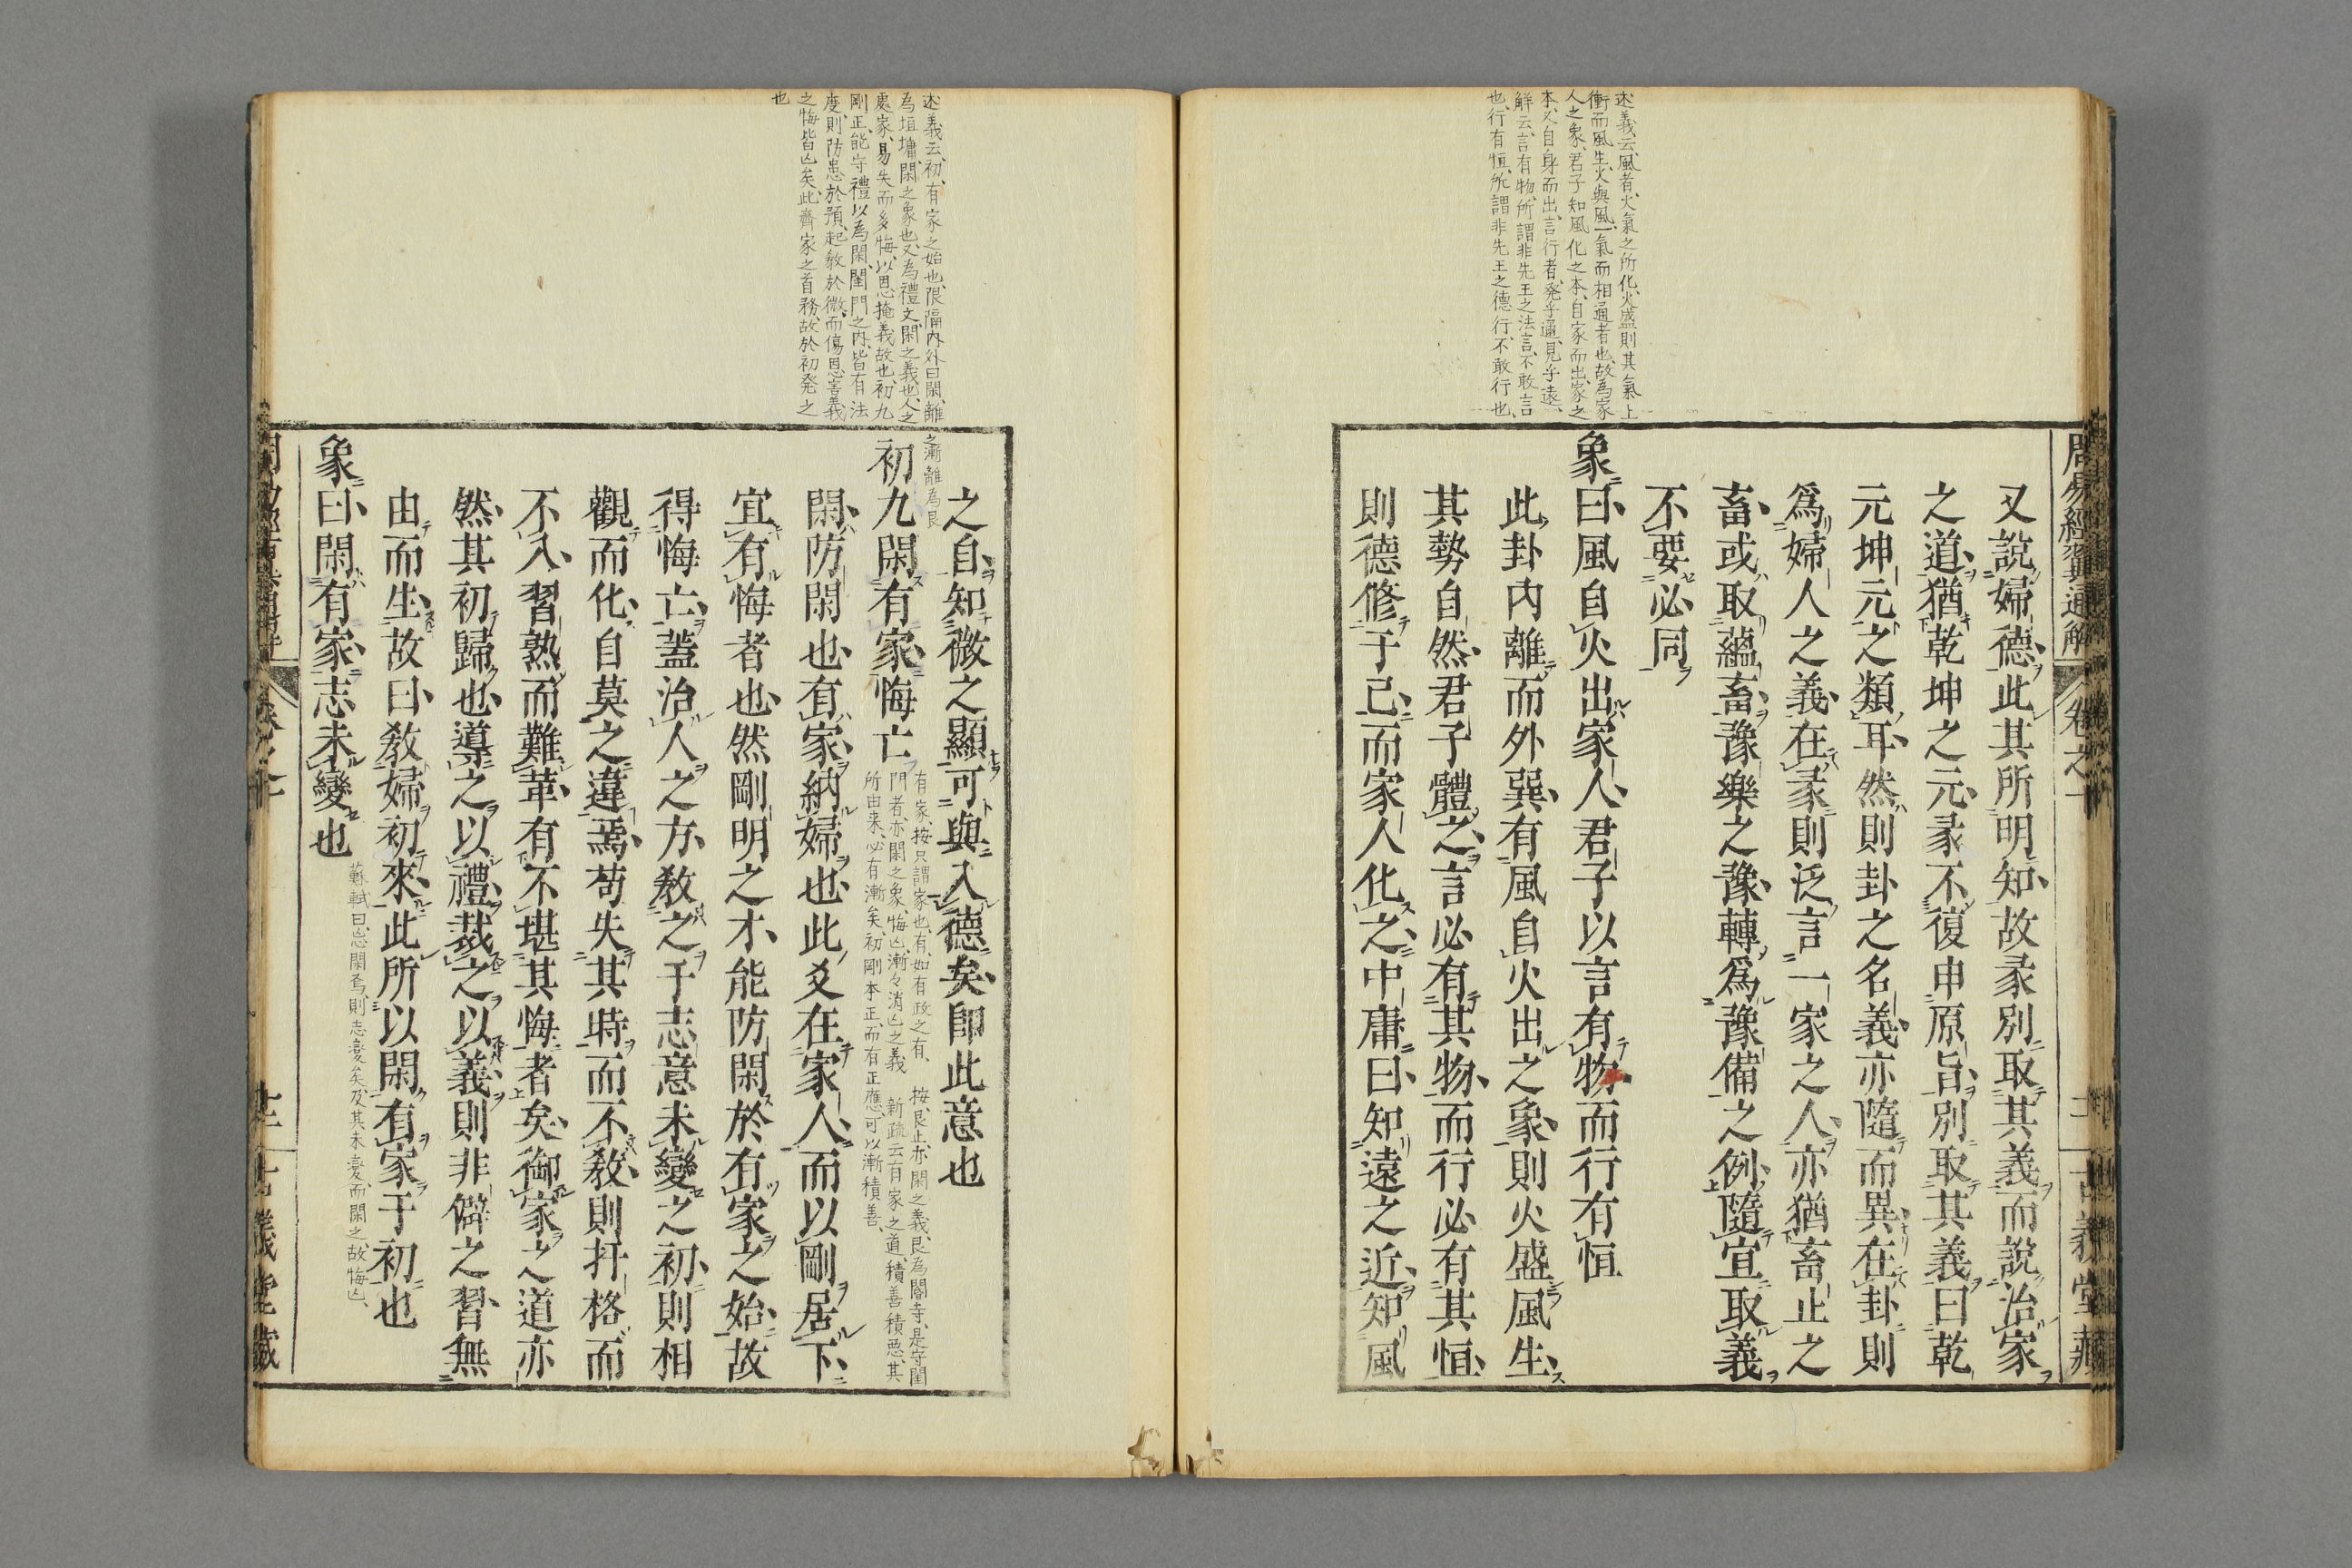 述義云、風者、火氣之所化、火盛則其氣上
衝而風生、火與風、一氣而相通者也、故為家
人之象、君子知風化之本、自家而出、家之
本、又自身而出、言行者、発乎邇、見乎遠、
解云、言有物、所謂非先王之法言、不敢言
也、行有恒、所謂非先王之德行、不敢行也、
又說婦德此其所明知故彖別取其義而說治家
之道猶乾坤之元彖不復申原旨別取其義曰乾
元坤元之類耳然則卦之名義亦隨而異在卦則
爲婦人之義在彖則泛言一家之人亦猶畜止之
畜或取蘊畜豫樂之豫轉爲豫備之例隨宜取義
不要必同
象曰風自火出家人君子以言有物而行有恒
此卦內離而外巽有風自火出之象則火盛風生
其勢自然君子體之言必有其物而行必有其恒
則德修于己而家人化之中庸曰知遠之近知風
述義云、初、有家之始也、限隔內外曰閑、離
為垣墉、閑之象也、又為禮文、閑之義也、人之
處家、易失而多悔、以恩掩義故也、初九
剛正、能守禮以為閑、閨門之內、皆有法
度、則防患於預、起敎於微、而傷恩害義
之悔皆亡矣、此齊家之首務、故於初発之
也
之漸離為艮
之自知微之顯可與入德矣卽此意也
初九閑有家悔亡
有家、按只謂家也、有、如有政之有、 按、艮止、亦閑之義、艮為閽寺、是守閨
門者、亦閑之象、悔亡、漸々消亡之義 新疏云有家之道、積善積悪、其
所由来、必有漸矣、初剛本正、而有正應、可以漸積善、
閑防閑也有家納婦也此爻在家人而以剛居下
宜有悔者也然剛明之才能防閑於有家之始故
得悔亡蓋治人之方敎之于志意未變之初則相
觀而化自莫之違焉苟失其時而不敎則扞格而
不入習熟而難革有不堪其悔者矣御家之道亦
然其初歸也導之以禮裁之以義則非僻之習無
由而生故曰敎婦初來此所以閑有家于初也
象曰閑有家志未變也
蘇軾曰、忘閑焉、則志変矣、及其未変、而閑之、故悔亡、
周易經翼通解 卷之十 古義堂藏